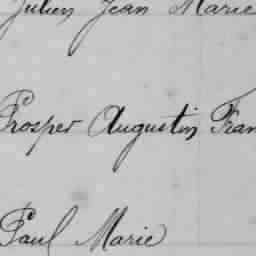 Julien Jean Marie
Prosper Augustin Fran
Paul Marie